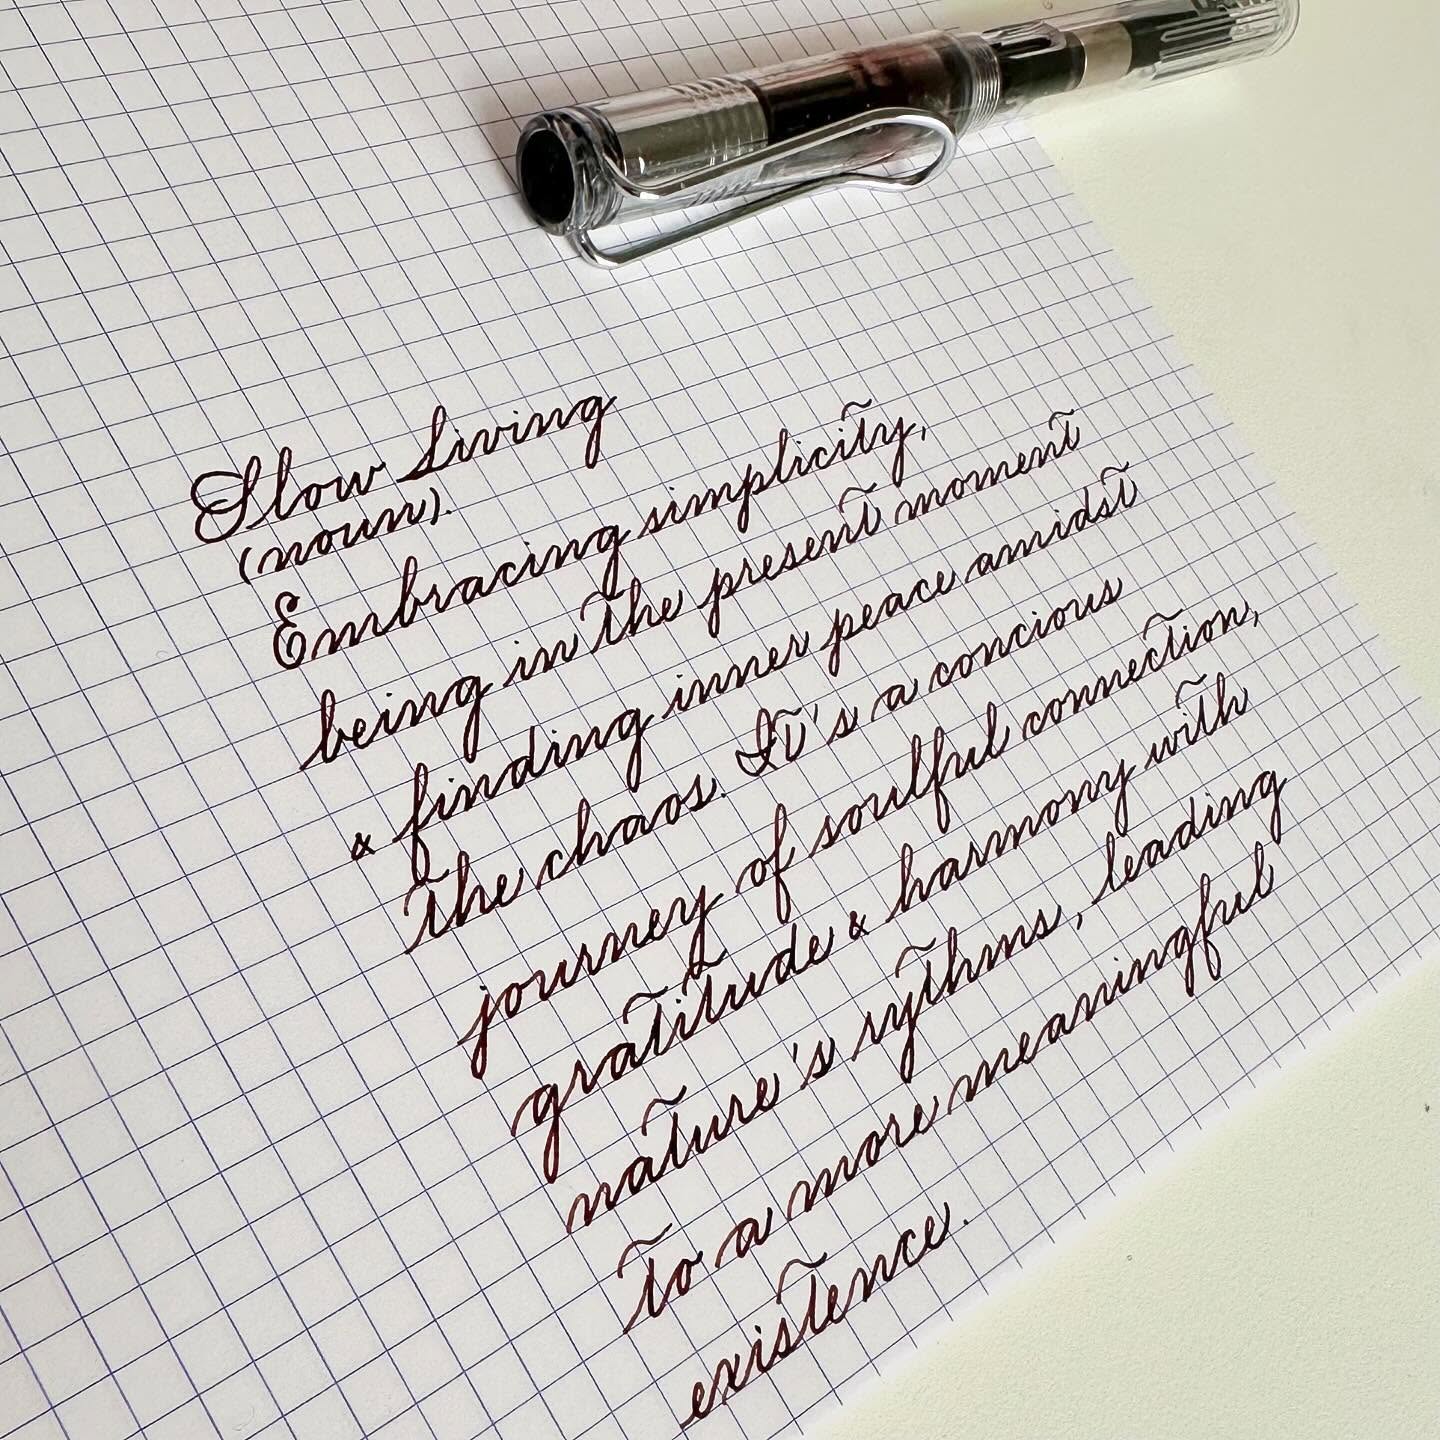 Slow Living
(noun).
Embracing simplicity,
being in the present moment
& finding inner peace amidst
the chaos. It's a concious
journey of soulful connection,
gratitude & harmony with
nature's rythms, leading
to a more meaningful
existence.